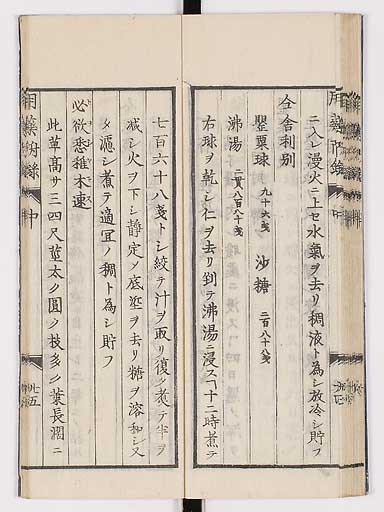 ニ入レ漫火ニ上セ水氣ヲ去リ稠液ト為シ放冷シ貯フ
仝舎利別
罌粟球 九十六戔 沙糖 二百八十八戔
沸湯 二貫八百八十戔
右球ヲ乾シ仁ヲ去リ剉テ沸湯ニ浸スヿ十二時煮テ
七百六十八戔トシ絞テ汁ヲ取リ復タ煮テ半ヲ
減シ火ヲ下シ静定メ底滓ヲ去リ糖ヲ溶和シ又
タ漉シ煮テ適宜ノ稠ト為シ貯フ
必欲悉雅木速
此草高サ三四尺莖太ク圓ク枝多ク葉長濶ニ
中
廿五